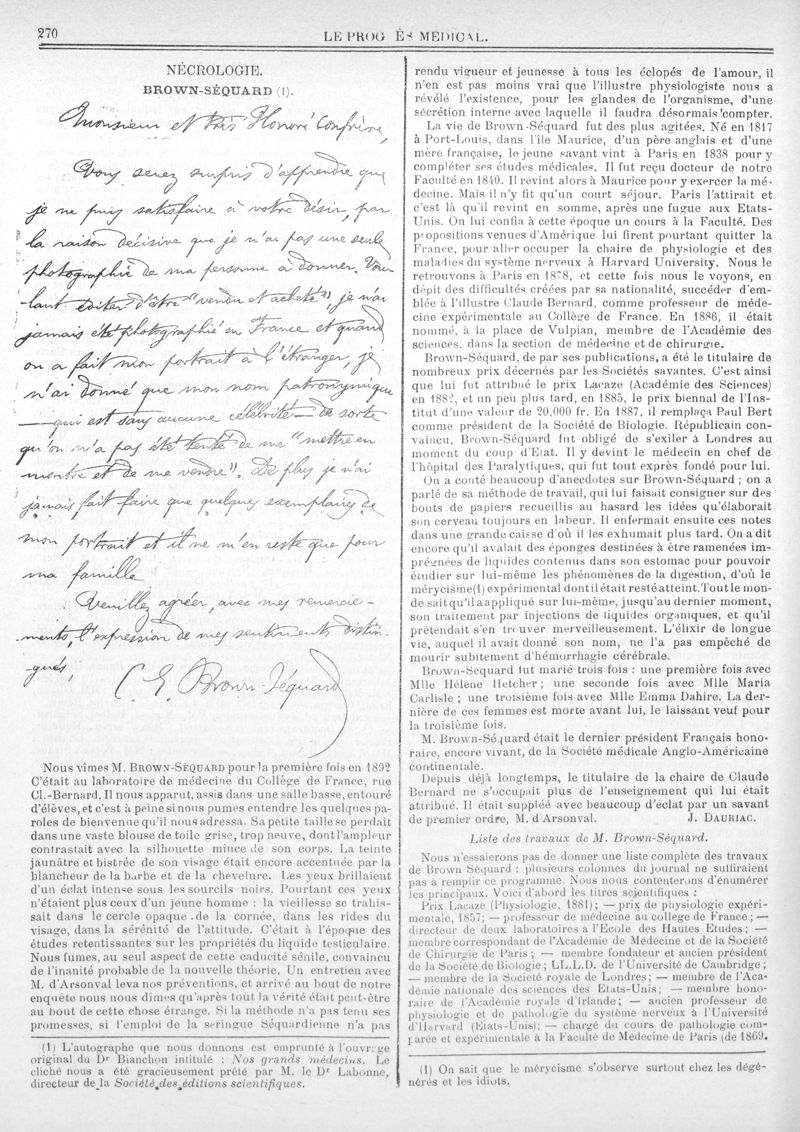 270
LE PROG ÈS MÉDICAL.
NÉCROLOGIE.
BROWN-SÉQUARD (1).
Monsieur et très Honoré Confrère,
Vous serez surpris d'apprendre que
je ne puis satisfaire à votre désir, par
la raison décisive que je n'ai pas une seule
photographie de ma personne à donner. Vou-
lant éviter d'être "vendu et acheté", je n'ai
jamais été photographié en France et quand
on a fait mon portrait à l'étranger, je
n'ai donné que mon nom patronymique
— qui est sans aucune célébrité — de sorte
qu'on n'a pas été tenté de me "mettre en
montre et de me vendre". De plus je n'ai
jamais fait faire que quelques exemplaires de
mon portrait et il ne m'en reste que pour
ma famille
Veuillez agréer, avec mes remercie-
ments, l'expression de mes sentiments distin-
gués,
C. E. Brown-Séquard
Nous vîmes M. BROWN-SÉQUARD pour la première fois en 1892
C'était au laboratoire de médecine du Collège de France, rue
Cl.-Bernard. Il nous apparut, assis dans une salle basse, entouré
d'élèves, et c'est à peine si nous pumes entendre les quelques pa-
roles de bienvenue qu'il nous adressa. Sa petite taille se perdait
dans une vaste blouse de toile grise, trop neuve, dont l'ampleur
contrastait avec la silhouette mince de son corps. La teinte
jaunâtre et bistrée de son visage était encore accentuée par la
blancheur de la barbe et de la chevelure. Les yeux brillaient
d'un éclat intense sous les sourcils noirs. Pourtant ces yeux
n'étaient plus ceux d'un jeune homme : la vieillesse se trahis-
sait dans le cercle opaque de la cornée, dans les rides du
visage, dans la sérénité de l'attitude. C'était à l'époque des
études retentissantes sur les propriétés du liquide testiculaire.
Nous fumes, au seul aspect de cette caducité sénile, convaincu
de l'inanité probable de la nouvelle théorie. Un entretien avec
M. d'Arsonval leva nos préventions, et arrivé au bout de notre
enquête nous nous dimes qu'après tout la vérité était peut-être
au bout de cette chose étrange. Si la méthode n'a pas tenu ses
promesses, si l'emploi de la seringue Séquardienne n'a pas
(1) L'autographe que nous donnons est emprunté à l'ouvrage
original du Dr Bianchon intitulé : Nos grands médecins. Le
cliché nous a été gracieusement prêté par M. le Dr Labonne,
directeur de la Société des éditions scientifiques.
rendu vigueur et jeunesse à tous les éclopés de l'amour, il
n'en est pas moins vrai que l'illustre physiologiste nous a
révélé l'existence, pour les glandes de l'organisme, d'une
sécrétion interne avec laquelle il faudra désormais compter.
La vie de Brown-Séquard fut des plus agitées. Né en 1817
à Port-Louis, dans l'île Maurice, d'un père anglais et d'une
mère française, le jeune savant vint à Paris en 1838 pour y
compléter ses études médicales. Il fut reçu docteur de notre
Faculté en 1840. Il revint alors à Maurice pour y exercer la mé-
decine. Mais il n'y fit qu'un court séjour. Paris l'attirait et
c'est là qu'il revint en somme, après une fugue aux Etats-
Unis. On lui confia à cette époque un cours à la Faculté. Des
propositions venues d'Amérique lui firent pourtant quitter la
France, pour aller occuper la chaire de physiologie et des
maladies du système nerveux à Harvard University. Nous le
retrouvons à Paris en 1878, et cette fois nous le voyons, en
dépit des difficultés créées par sa nationalité, succéder d'em-
blée à l'illustre Claude Bernard, comme professeur de méde-
cine expérimentale au Collège de France. En 1886, il était
nommé, à la place de Vulpian, membre de l'Académie des
sciences, dans la section de médecine et de chirurgie.
Brown-Séquard, de par ses publications, a été le titulaire de
nombreux prix décernés par les Sociétés savantes. C'est ainsi
que lui fut attribué le prix Lacaze (Académie des Sciences)
en 1882, et un peu plus tard, en 1885, le prix biennal de l'Ins-
titut d'une valeur de 20.000 fr. En 1887, il remplaça Paul Bert
comme président de la Société de Biologie. Républicain con-
vaincu, Brown-Séquard fut obligé de s'exiler à Londres au
moment du coup d'Etat. Il y devint le médecin en chef de
l'hôpital des Paralytiques, qui fut tout exprès fondé pour lui.
On a conté beaucoup d'anecdotes sur Brown-Séquard ; on a
parlé de sa méthode de travail, qui lui faisait consigner sur des
bouts de papiers recueillis au hasard les idées qu'élaborait
son cerveau toujours en labeur. Il enfermait ensuite ces notes
dans une grande caisse d'où il les exhumait plus tard. On a dit
encore qu'il avalait des éponges destinées à être ramenées im-
prégnées de liquides contenus dans son estomac pour pouvoir
étudier sur lui-même les phénomènes de la digestion, d'où le
mérycisme(1) expérimental dont il était resté atteint. Tout le mon-
de sait qu'il a appliqué sur lui-même, jusqu'au dernier moment,
son traitement par injections de liquides organiques, et qu'il
prétendait s'en trouver merveilleusement. L'élixir de longue
vie, auquel il avait donné son nom, ne l'a pas empêché de
mourir subitement d'hémorrhagie cérébrale.
Brown-Sequard fut marié trois fois : une première fois avec
Mlle Hélène Fletcher ; une seconde fois avec Mlle Maria
Carlisle ; une troisième fois avec Mlle Emma Dahire. La der-
nière de ces femmes est morte avant lui, le laissant veuf pour
la troisième fois.
M. Brown-Séquard était le dernier président Français hono-
raire, encore vivant, de la Société médicale Anglo-Américaine
continentale.
Depuis déjà longtemps, le titulaire de la chaire de Claude
Bernard ne s'occupait plus de l'enseignement qui lui était
attribué. Il était suppléé avec beaucoup d'éclat par un savant
de premier ordre, M. d'Arsonval. J. DAURIAC.
Liste des travaux de M. Brown-Séquard.
Nous n'essaierons pas de donner une liste complète des travaux
de Brown Séquard : plusieurs colonnes du journal ne suffiraient
pas à remplir ce programme. Nous nous contenterons d'énumérer
les principaux. Voici d'abord les titres scientifiques :
Prix Lacaze (Physiologie, 1881) ; — prix de physiologie expéri-
mentale, 1857; — professeur de médecine au collège de France ; —
directeur de deux laboratoires à l'Ecole des Hautes Etudes ; —
membre correspondant de l'Académie de Médecine et de la Société
de Chirurgie de Paris ; — membre fondateur et ancien président
de la Société de Biologie ; LL.L.D. de l'Université de Cambridge ;
— membre de la Société royale de Londres ; — membre de l'Aca-
démie nationale des sciences des Etats-Unis ; — membre hono-
raire de l'Académie royale d'Irlande ; — ancien professeur de
physiologie et de pathologie du système nerveux à l'Université
d'Harvard (Etats-Unis) ; — chargé du cours de pathologie com-
parée et expérimentale à la Faculté de Médecine de Paris (de 1869.
(1) On sait que le mérycisme s'observe surtout chez les dégé-
nérés et les idiots.